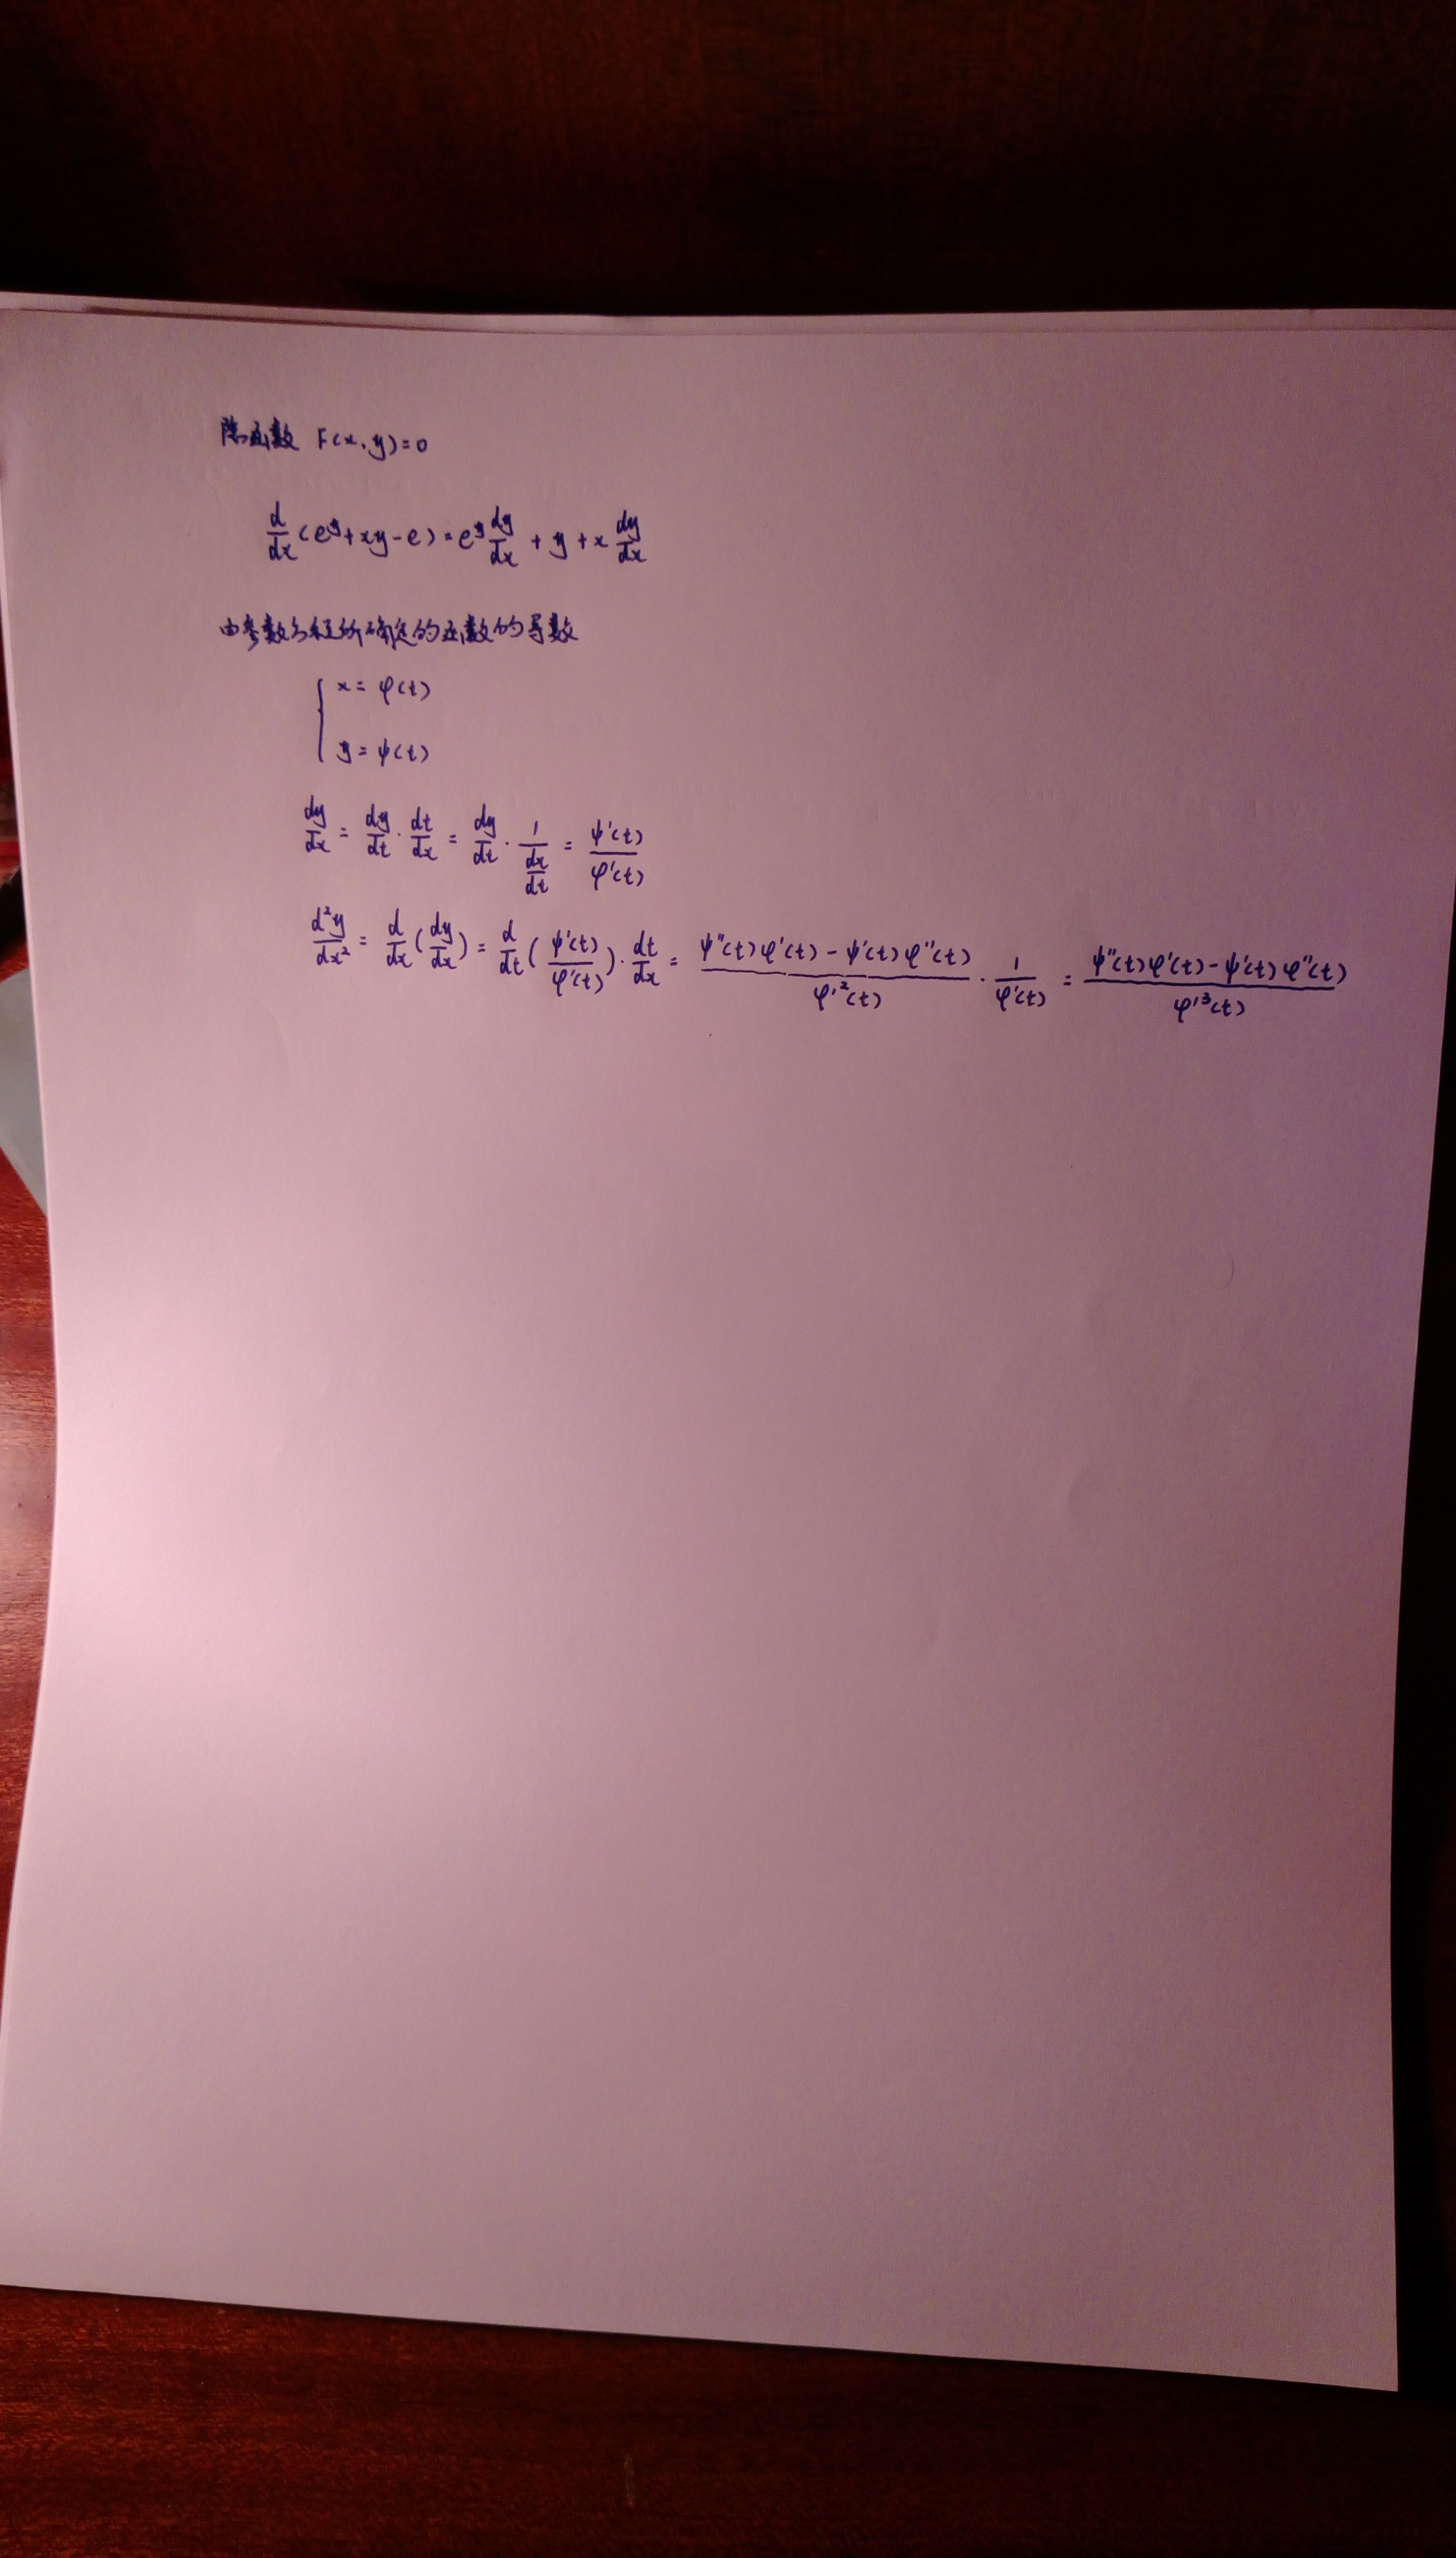 隐函数 F(x,y)=0
d/dx (e^y+xy-e) = e^y dy/dx + y + x dy/dx
由参数方程所确定的函数的导数
{ x = φ(t)
y = ψ(t)
dy/dx = dy/dt · dt/dx = dy/dt · 1/(dx/dt) = ψ'(t)/φ'(t)
d²y/dx² = d/dx (dy/dx) = d/dt (ψ'(t)/φ'(t)) · dt/dx = (ψ''(t)φ'(t) - ψ'(t)φ''(t))/φ'²(t) · 1/φ'(t) = (ψ''(t)φ'(t) - ψ'(t)φ''(t))/φ'³(t)